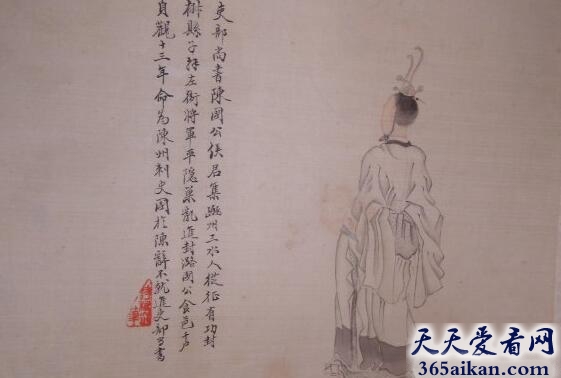 吏部尚書陳國公侯君集豳州三水人從征有功封
椒縣子拜左衛將軍平隱巢亂進封潞國公食邑千戶
貞觀十三年命為陳州刺史國於陳辭不就進吏部尚書
天天爱看网
365aikan.com